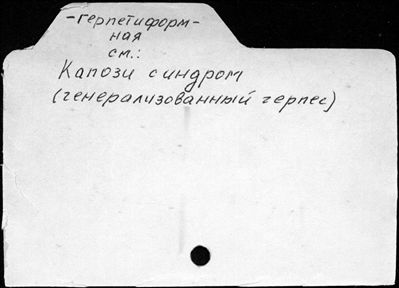 -герпетиформ-
ная
см.:
Капози синдром
(генерализованный герпес)